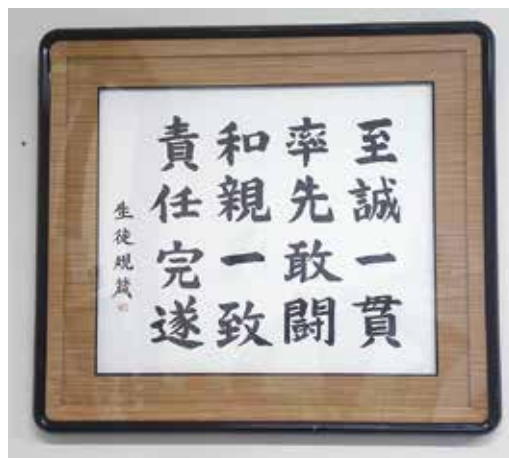 至誠一貫
率先敢闘
和親一致
責任完遂
生徒規箴